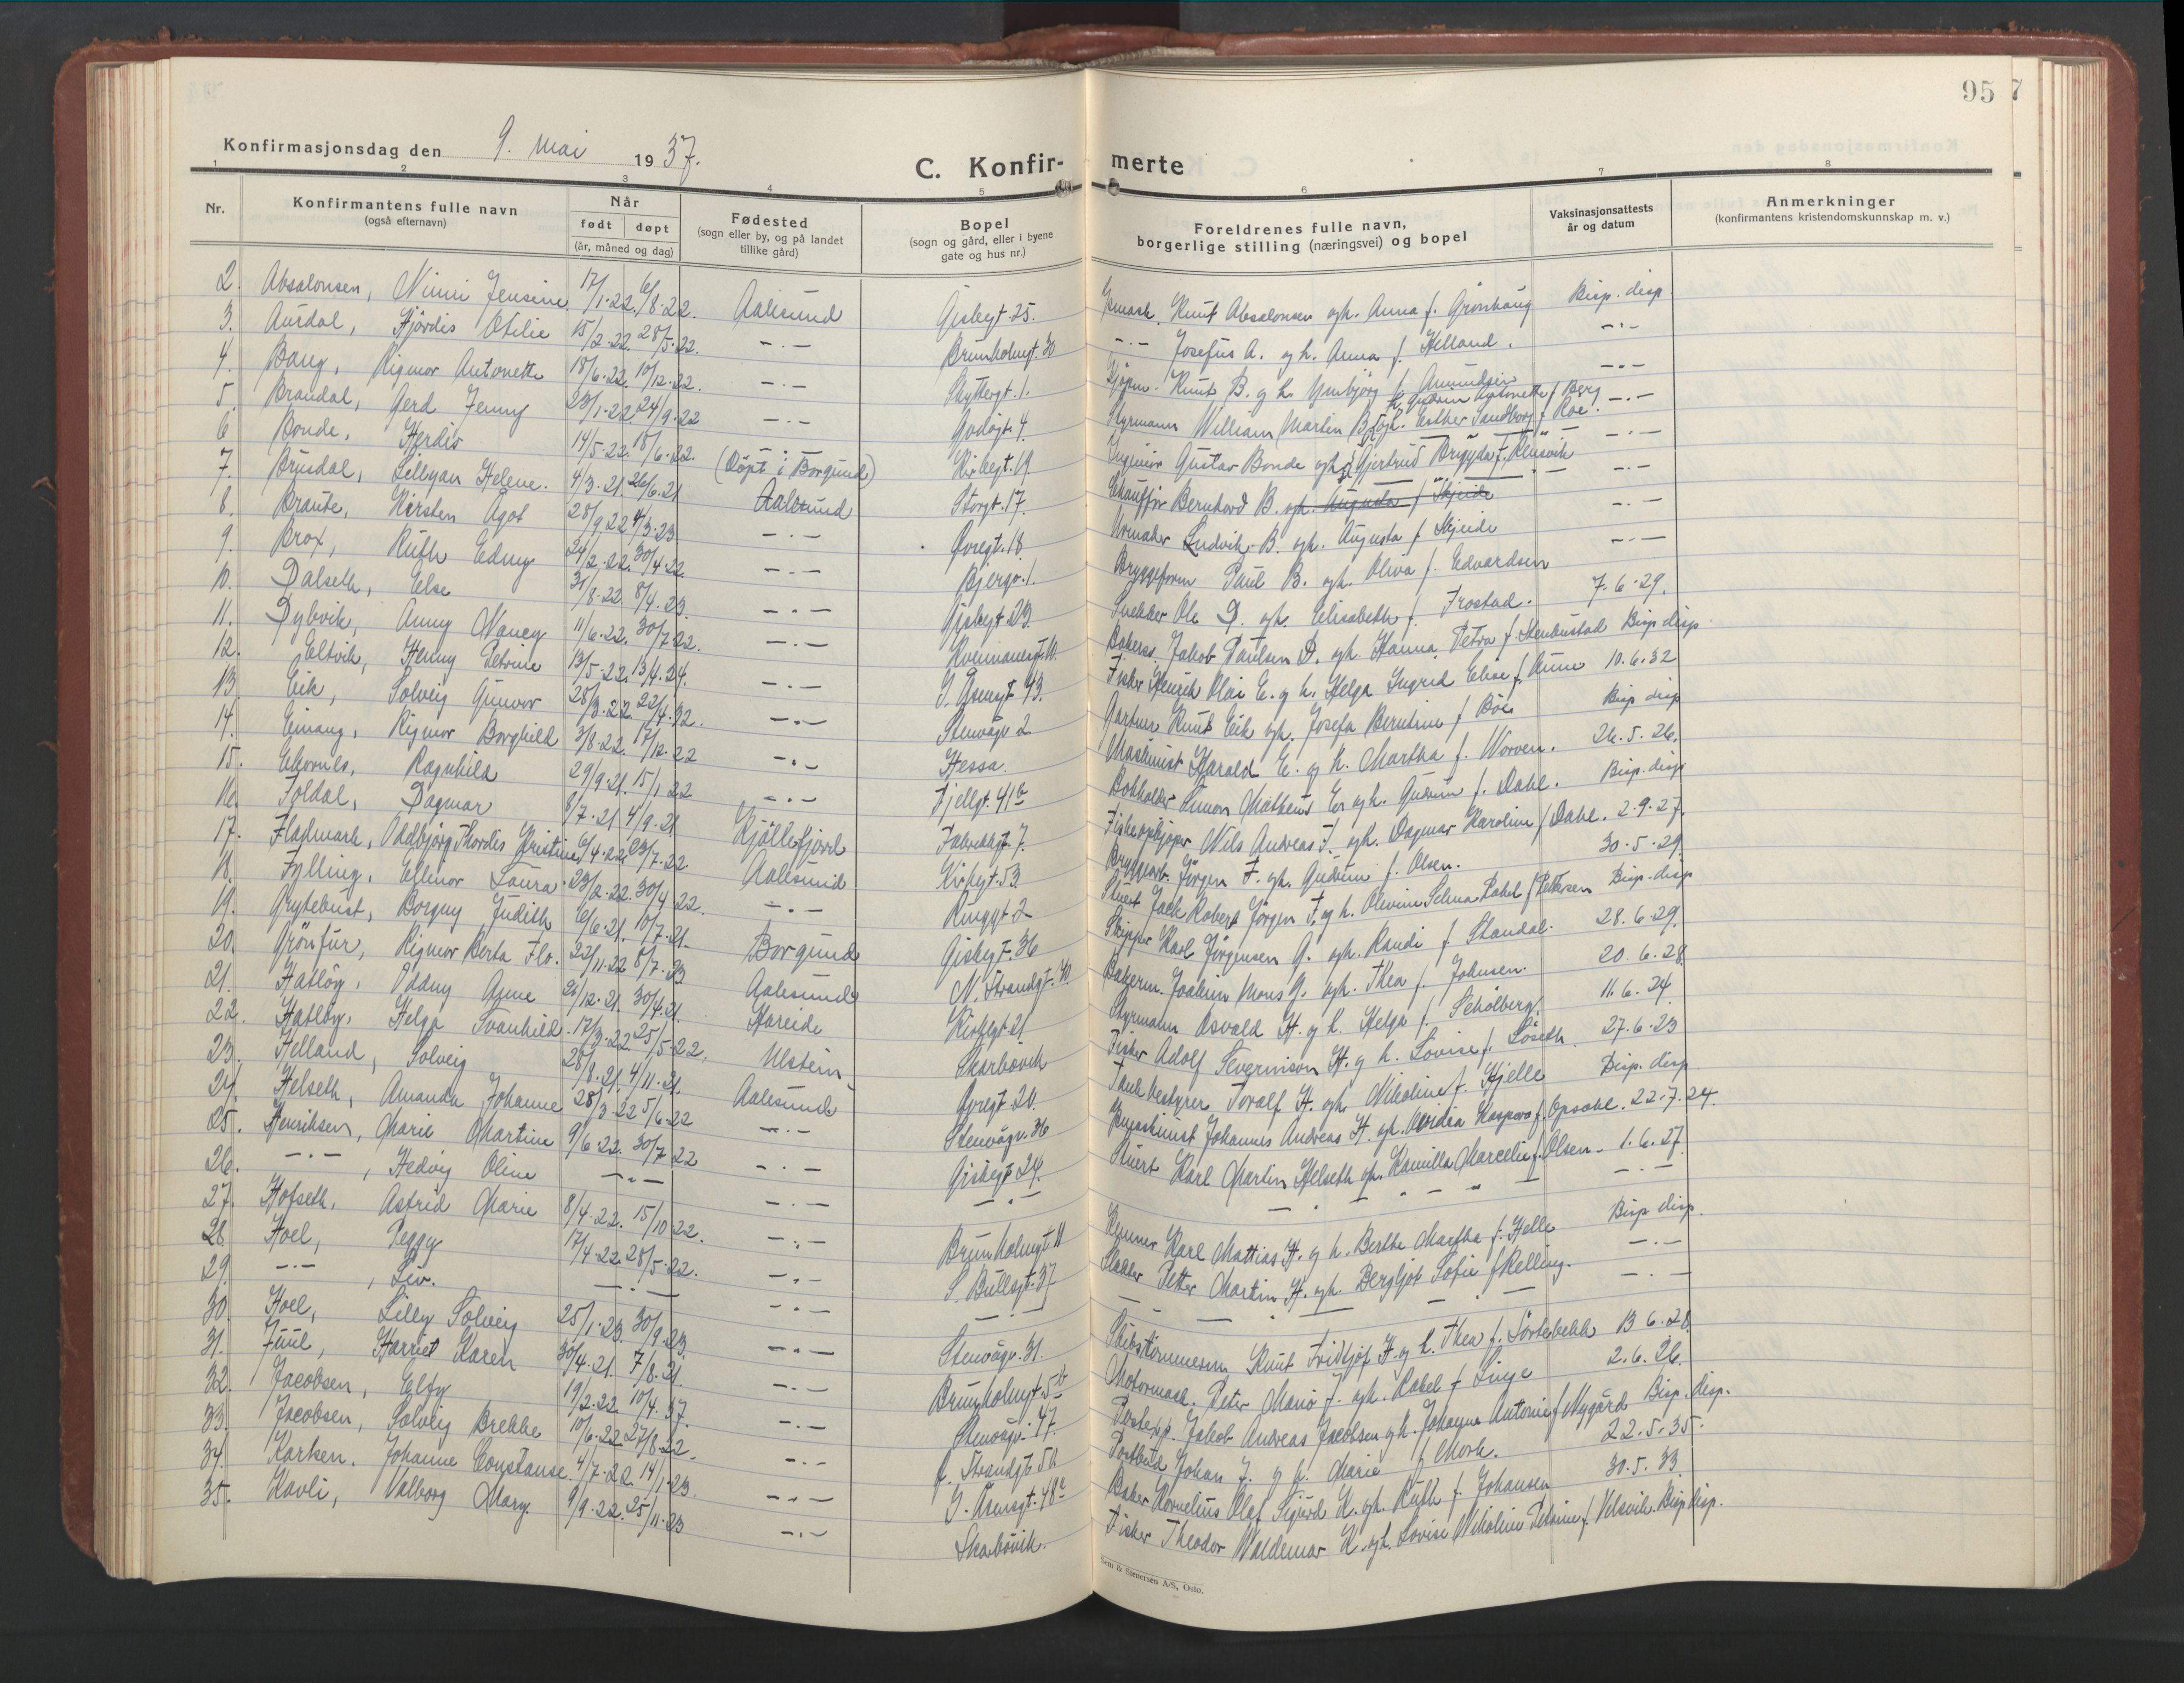 95 7
Konfirmasjonsdag den 9. mai 1937.
C. Konfir- merte
1 2 3 4 5 6 7 8
Nr. Konfirmantens fulle navn (også efternavn) Når født døpt (år, måned og dag) Fødested (sogn eller by, og på landet tillike gård) Bopel (sogn og gård, eller i byene gate og hus nr.) Foreldrenes fulle navn, borgerlige stilling (næringsvei) og bopel Vaksinasjonsattests år og datum Anmerkninger (konfirmantens kristendomskunnskap m. v.)
2. Absalonsen, Nimi Jensine 17/1.22. 6/8.22. Aalesund Gisbegt. 25. Knut Absalonsen og h. Anna f. Grønhaug Bisp. disp.
3. Aurdal, Hjørdis Otilie 15/2.22. 28/5.22. -.- Brunholmgt. 30 -.- Josefus A. og h. Anna f. Helland. -.-
4. Bang, Rigmor Antonette 18/6.22. 10/12.22. -.- Skyttergt. 1. Knut B. og h. Ginbjørg f. Amundsen -.-
5. Brandal, Gerd Jenny 23/1.22. 24/9.22 -.- Godøgt. 4. Styrmann William Martin B. og h. Esther Sandborg f. Roe. h. Gudrun Antonette f. Berg -.-
6 Bonde, Herdis 14/5.22. 18/6.22. -.- (Døpt i Borgund) Kirkegt. 19 Ingeniør Gustav Bonde og h. Gjertrud Brigyda f. Klusvik -.-
7. Brusdal, Lillyan Helene. 4/3.21. 26/6.21 Aalesund Storgt. 17. Chauffør Bernhard B. og h. Augusta f. Skjeide -.-
8. Braute, Kirsten Agot 28/9.22 4/3.23 -.- Øvregt. 18. Urmaker Ludvik B. og h. Augusta f. Skjeide -.-
9. Brox, Ruth Edny 24/2.22. 30/4.22. -.- Bjergv. 1. Bryggeform. Paul B. og h. Oliva f. Edvardsen -.-
10. Dalseth, Else 31/8.22. 8/4.23. -.- Gisbegt. 23. Snekker Ole D. og h. Elisabeth f. Frostad. 7.6.29.
11. Dybvik, Anny Nancy 11/6.22. 30/7.22. -.- Kvennanesgt. 10. Jakob Paulsen D. og h. Hanna Petra f. Stenbustad Bisp. disp.
12. Eltvik, Henny Petrine 13/5.22. 13/4.24. -.- J. Aasengt. 43. Fisker Henrik Olai E. og h. Helga Ingrid Elise f. Aune 10.6.32
13. Eik, Solveig Gunvor 28/3.22. 22/4.32. -.- Stenvågv. 2 Gartner Knut Eik og h. Josefa Berntine f. Böe Bisp. disp.
14. Einang, Rigmor Borghild 3/8.22. 17/12.22 -.- Hessa. Maskinist Harald E. og h. Martha f. Worren. 26.5.26.
15. Ekornes, Ragnhild 29/9.21. 15/1.22 -.- Fjellgt. 41b Bokholder Simon Matheus E. og h. Gudrun f. Dahl. Bisp. disp.
16. Foldal, Dagmar 8/7.21 4/9.21 Kjøllefjord Fabrikkgt. 7. Fiskeopkjøper Nils Andreas F. og h. Dagmar Karoline f. Dahl. 2.9.27.
17. Fladmark, Oddbjørg Thordis Kristine 6/4.22 23/7.22 Aalesund Kirkegt. 53. Bryggearb. Jørgen F. og h. Gudrun f. Olsen. 30.5.29.
18. Fylling, Ellinor Laura 23/2.22. 30/4.22. -.- Ringgt. 2 Stuert Jack Robert Jørgen F. og h. Olivine Selma Rakel f. Pettersen Bisp. disp.
19. Grytebust, Borgny Judith 6/6.21. 10/7.21. Borgund Gisbegt. 36 Skipper Karl Jørgensen G. og h. Randi f. Standal. 28.6.29.
20. Grönfur, Rigmor Berta Flo. 22/11.22 8/7.23 Aalesund N. Strandgt. 40. Bakerm. Joakim Mons G. og h. Thea f. Johnsen. 20.6.28.
21. Hatløy, Oddny Anne 21/12.21. 30/4.21. Hareide Kirkegt. 21 Styrmann Osvald H. og h. Helga f. Schølberg. 11.6.24
22. Hatløy, Helga Svanhild. 17/3.22. 25/5.22. Ulstein Skarbövik Fisker Adolf Severinson H. og h. Lovise f. Løseth. 27.6.23
23. Helland, Solveig 28/8.21. 4/11.21. Aalesund Øvregt. 20. Toralf H. og h. Nikoline f. Hjelle Bisp. disp.
24. Helseth, Amanda Johanne 28/3.22 5/6.22 -.- Stenvågv. 36 Johannes Andreas H. og h. Ovidia Kaspara f. Opsahl. 22.7.24.
25. Henriksen, Marie Martine 9/6.22. 30/7.22 -.- Gisbegt. 24. Stuert Karl Martin Helseth og h. Kamilla Marcelie f. Olsen. 1.6.27.
26. -.- , Hedvig Oline -.- -.- -.- -.- -.-
27. Hofseth, Astrid Marie 8/4.22. 15/10.22. -.- Brunholmgt. 11 Karl Mattias H. og h. Berthe Martha f. Helle Bisp. disp.
28. Hoel, Peggy 17/4.22. 28/5.22. -.- S. Bullsgt. 37 Petter Martin H. og h. Bergljot Sofie f. Relling. -.-
29. -.- , Liv. -.- -.- -.- -.- -.-
30. Hoel, Lilly Solveig 25/1.23. 30/9.23. -.- Stenvågv. 31. Skibstømmerm. Knut Fridtjof H. og h. Thea f. Sortebekk 13 6.28.
31. Juul, Harriet Karen 30/4.21. 7/8.21. -.- Brunholmgt. 5b Motormask. Peter Mario J. og h. Rakel f. Linge 2.6.26.
32. Jacobsen, Elfy 19/2.22. 10/4.37. -.- Stenvågv. 47. Jakob Andreas Jacobsen og h. Johanna Antonie f. Nygård Bisp. disp.
33. Jacobsen, Solveig Brekke 10/6.22. 27/8.22. -.- Strandgt. 50 Postbud Johan J. og h. Marie f. Mork. 22.5.35.
34. Karlsen, Johanne Constanse. 4/7.22. 14/1.23. -.- J. Aasengt. 48c Baker Kornelius Olaf Sigurd K. og h. Ruth f. Johansen 30.5.33.
35. Kavli, Valborg Mary. 9/9.22. 25/11.23 -.- Skarbövik. Fisker Theodor Valdemar K. og h. Lovise Nikoline Petrine f. Velsvik. Bisp. disp.
& Stenersen A/S, Oslo.